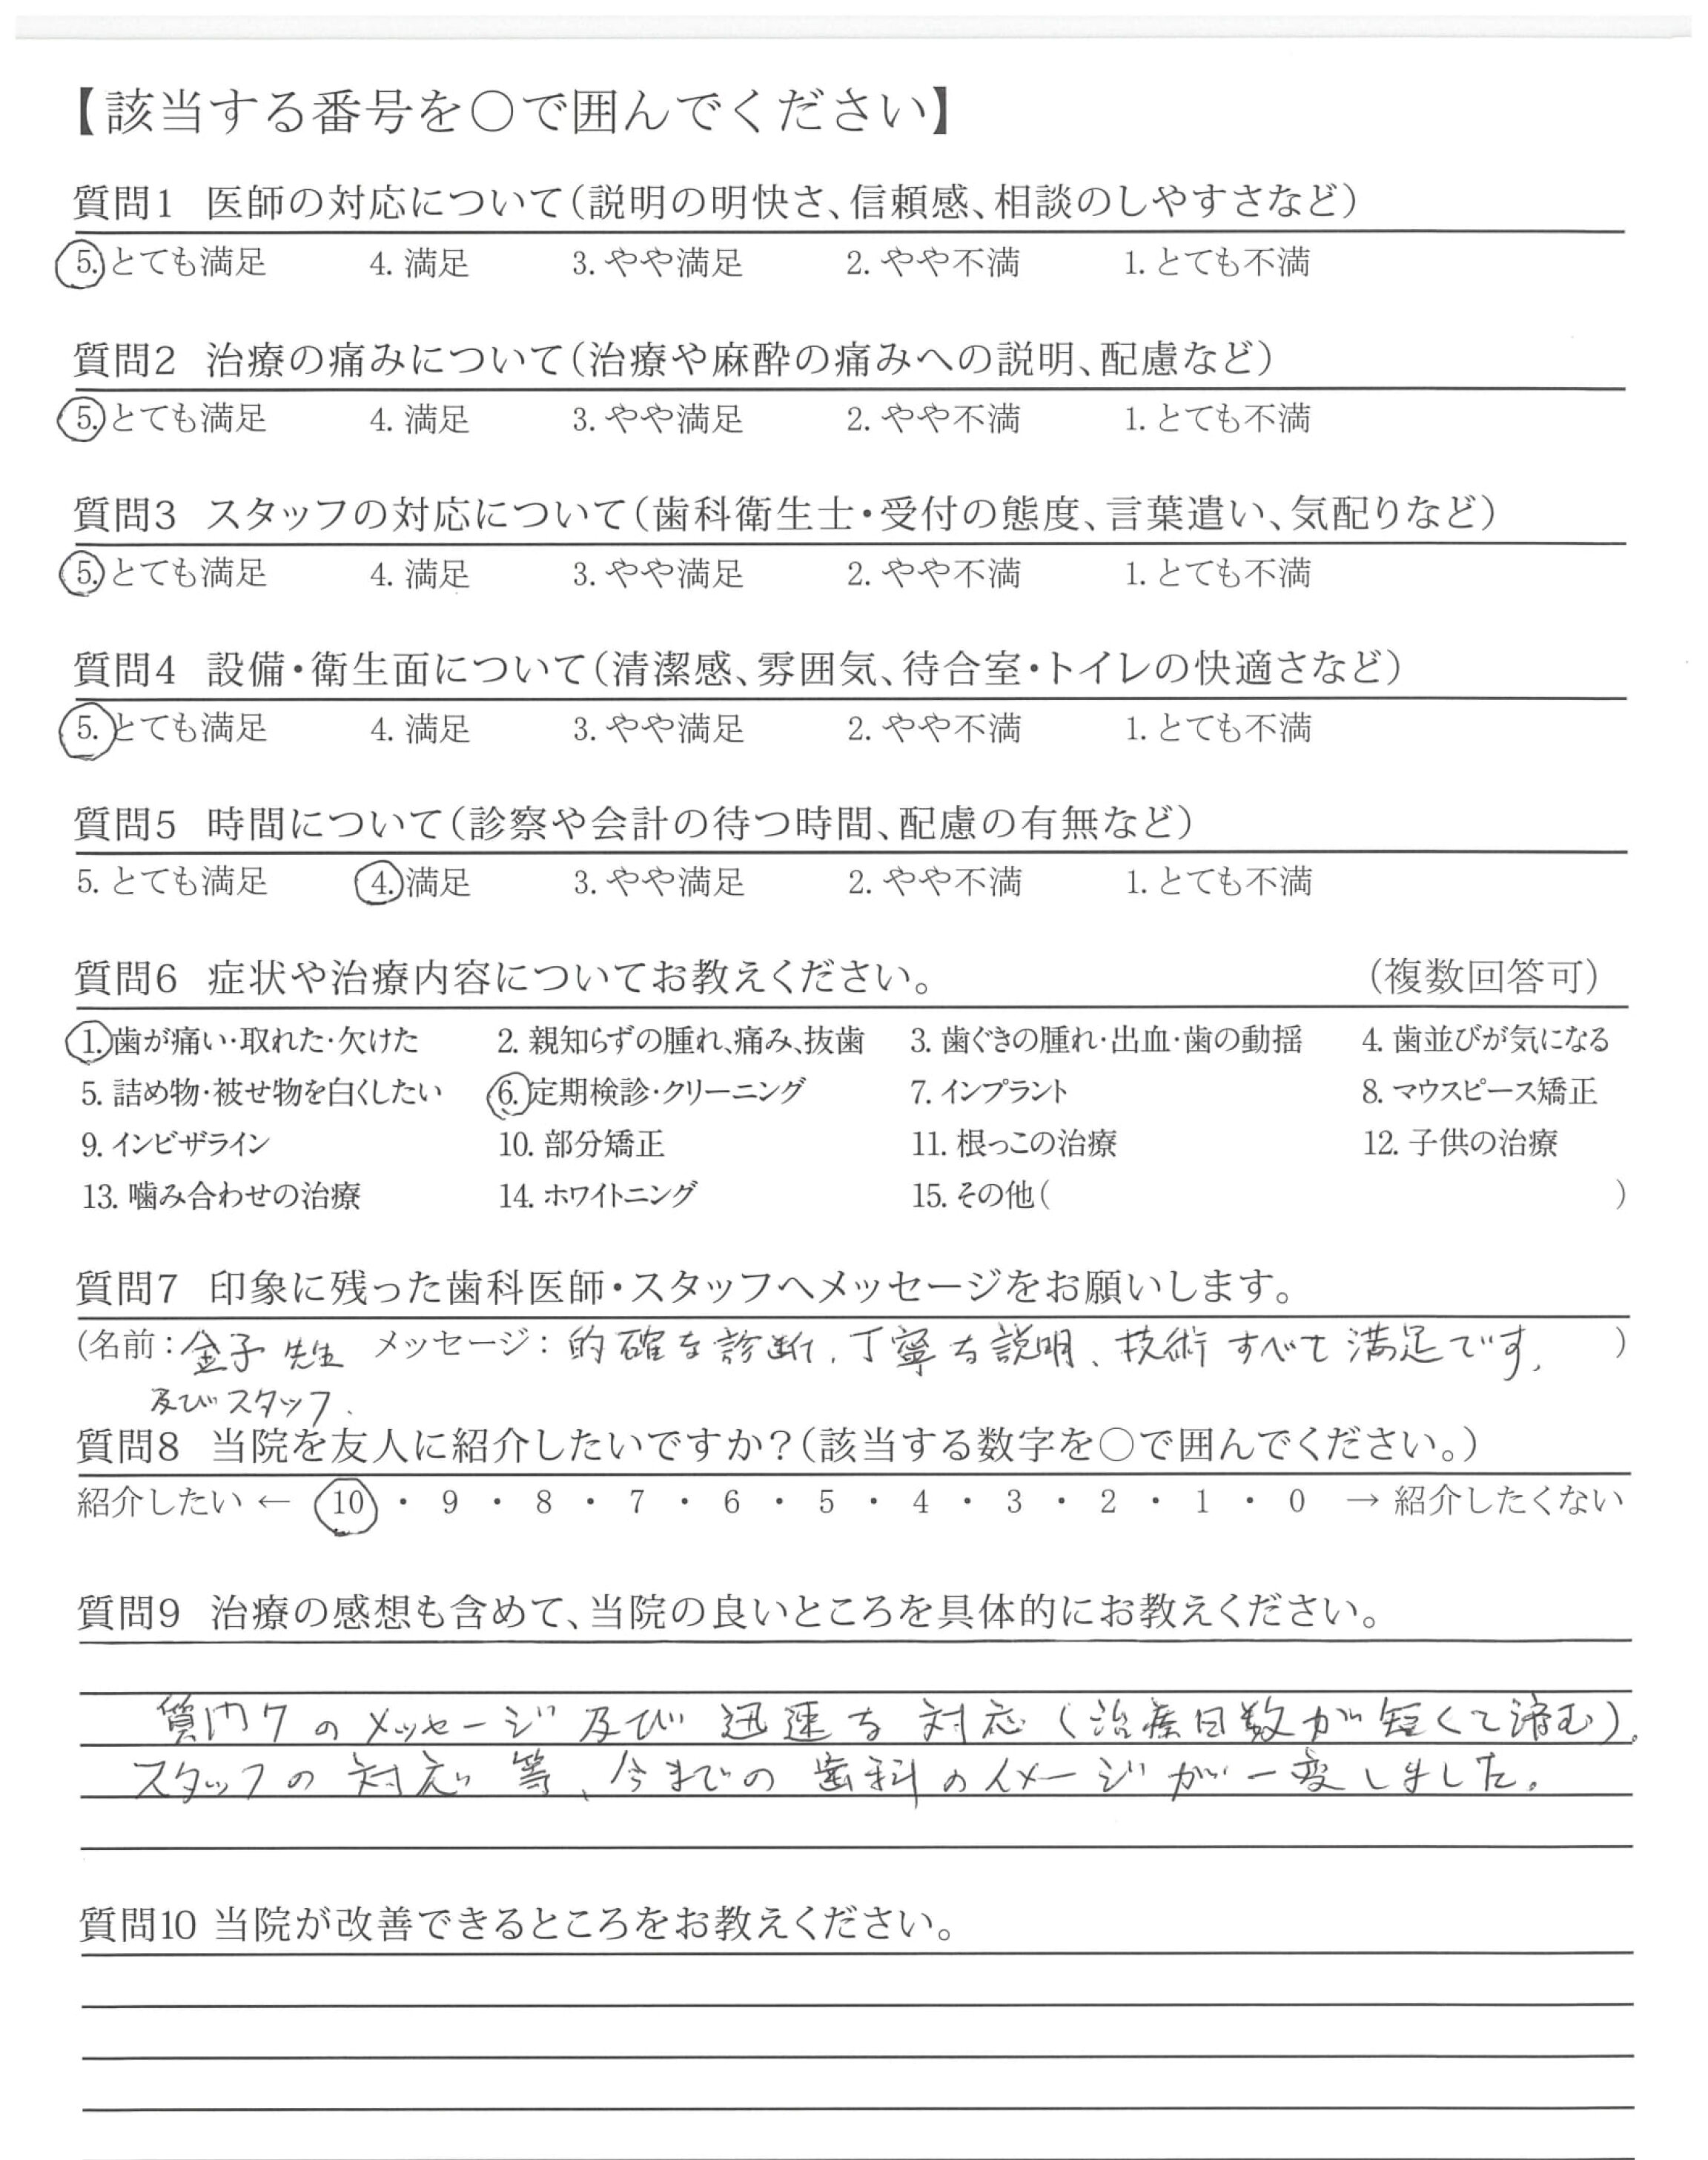 【該当する番号を○で囲んでください】
質問1 医師の対応について(説明の明快さ、信頼感、相談のしやすさなど)
5. とても満足 4. 満足 3. やや満足 2. やや不満 1. とても不満
質問2 治療の痛みについて(治療や麻酔の痛みへの説明、配慮など)
5. とても満足 4. 満足 3. やや満足 2. やや不満 1. とても不満
質問3 スタッフの対応について(歯科衛生士・受付の態度、言葉遣い、気配りなど)
5. とても満足 4. 満足 3. やや満足 2. やや不満 1. とても不満
質問4 設備・衛生面について(清潔感、雰囲気、待合室・トイレの快適さなど)
5. とても満足 4. 満足 3. やや満足 2. やや不満 1. とても不満
質問5 時間について(診察や会計の待つ時間、配慮の有無など)
5. とても満足 4. 満足 3. やや満足 2. やや不満 1. とても不満
質問6 症状や治療内容についてお教えください。 (複数回答可)
1. 歯が痛い・取れた・欠けた 2. 親知らずの腫れ、痛み、抜歯 3. 歯ぐきの腫れ・出血・歯の動揺 4. 歯並びが気になる
5. 詰め物・被せ物を白くしたい 6. 定期検診・クリーニング 7. インプラント 8. マウスピース矯正
9. インビザライン 10. 部分矯正 11. 根っこの治療 12. 子供の治療
13. 噛み合わせの治療 14. ホワイトニング 15. その他( )
質問7 印象に残った歯科医師・スタッフへメッセージをお願いします。
(名前：金子先生 メッセージ：的確な診断、丁寧な説明、技術すべて満足です。 )
及びスタッフ.
質問8 当院を友人に紹介したいですか？(該当する数字を○で囲んでください。)
紹介したい ← 10 ・ 9 ・ 8 ・ 7 ・ 6 ・ 5 ・ 4 ・ 3 ・ 2 ・ 1 ・ 0 → 紹介したくない
質問9 治療の感想も含めて、当院の良いところを具体的にお教えください。
質問7のメッセージ及び迅速な対応(治療日数が短くて済む)。
スタッフの対応等、今までの歯科のイメージが一変しました。
質問10 当院が改善できるところをお教えください。